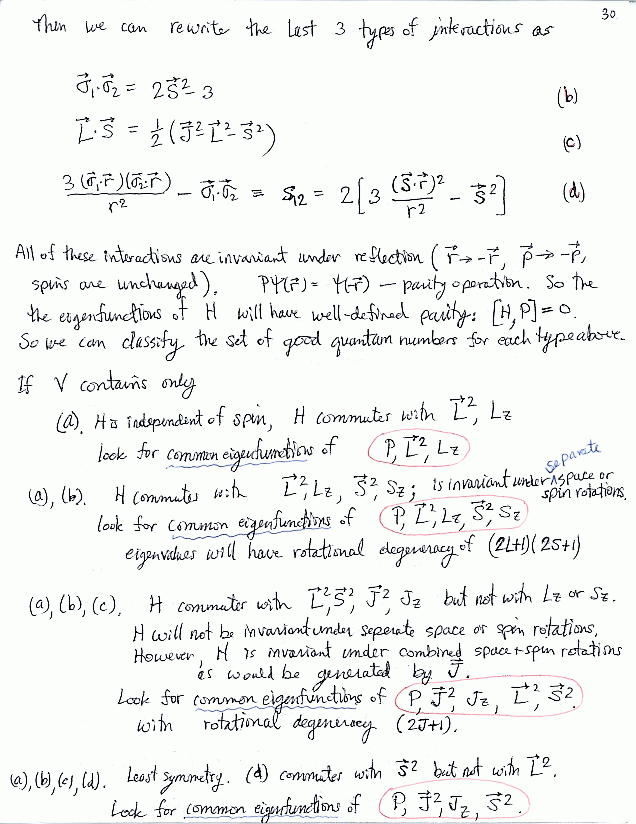 30
Then we can rewrite the last 3 types of interactions as
σ⃗₁·σ⃗₂ = 2S⃗² - 3 (b)
L⃗·S⃗ = ½(J⃗² - L⃗² - S⃗²) (c)
3(σ⃗₁·r⃗)(σ⃗₂·r⃗)/r² - σ⃗₁·σ⃗₂ ≡ S₁₂ = 2[3 (S⃗·r⃗)²/r² - S⃗²] (d)
All of these interactions are invariant under reflection (r⃗→-r⃗, p⃗→-p⃗,
spins are unchanged). Pψ(r⃗) = ψ(-r⃗) — parity operation. So the
the eigenfunctions of H will have well-defined parity: [H,P]=0.
So we can classify the set of good quantum numbers for each type above.
If V contains only
(a). H is independent of spin, H commutes with L⃗², Lz
look for common eigenfunctions of P, L⃗², Lz
(a), (b). H commutes with L⃗², Lz, S⃗², Sz; is invariant under separate space or
spin rotations.
look for common eigenfunctions of P, L⃗², Lz, S⃗², Sz
eigenvalues will have rotational degeneracy of (2L+1)(2S+1)
(a), (b), (c). H commutes with L⃗², S⃗², J⃗², Jz but not with Lz or Sz.
H will not be invariant under seperate space or spin rotations,
However, H is invariant under combined space + spin rotations
as would be generated by J⃗.
Look for common eigenfunctions of P, J⃗², Jz, L⃗², S⃗²
with rotational degeneracy (2J+1).
(a), (b), (c), (d). Least symmetry. (d) commutes with S⃗² but not with L⃗².
Look for common eigenfunctions of P, J⃗², Jz, S⃗².